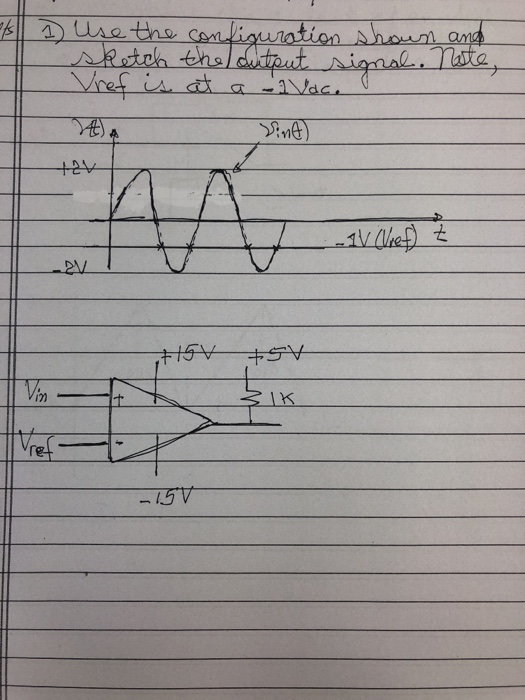 1) Use the configuration shown and
sketch the output signal. Note,
Vref is at a -1Vdc.
V(t)
Vin(t)
+2V
-1V (Vref) t
-2V
+15V +5V
Vin + 1K
Vref -
-15V